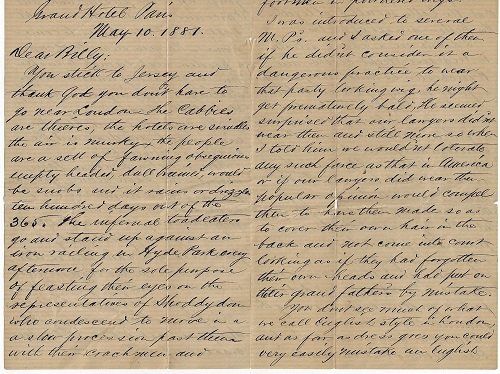 Grand Hotel Paris
May 10. 1881.
Dear Billy:
You stick to Jersey and
thank God you don't have to
go near London. The Cabbies
are thieves, the hotels are swindles
the air is murky & the people
are a sett of fawning obsequious
empty headed, dull brained, would
be snobs and it rains or drizzles
ten hundred days out of the
365. The infernal toadeaters
go and stand up against an
iron railing in Hyde Park every
afternoon for the sole purpose
of feasting their eyes on the
representatives of Shoddydom
who condescend to move in a
a slow procession past them
with their coachmen and
footmen in
I was introduced to several
M.P's. and I asked one of them
if he didn't consider it a
dangerous practice to wear
that party looking wig, he might
get prematurely bald. He seemed
surprised that our lawyers didn't
wear them and still more so when
I told him we wouldn't tolerate
any such farce as that in America
or if our lawyers did wear them
popular opinion would compel
them to have them made so as
to cover their own hair in the
back and not come into court
looking as if they had forgotten
their own heads and had put on
their grand fathers by mistake.
You don't see much of what
we call English style in London,
and as far as dress goes you could
very easily mistake an English